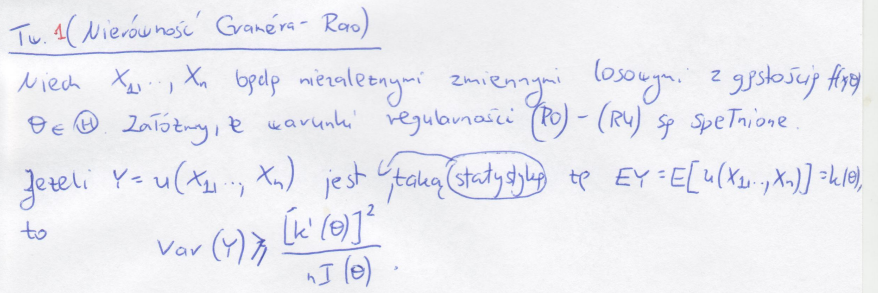 Tw. 1 (Nierówność Craméra-Rao)
Niech X₁, ..., Xₙ będą niezależnymi zmiennymi losowymi z gęstością f(x,θ)
θ ∈ Ⓗ. Załóżmy, że warunki regularności (R0) - (R4) są spełnione.
Jeżeli Y = u(X₁, ..., Xₙ) jest taką statystyką tą EY = E[u(X₁, ..., Xₙ)] = k(θ),
to
Var(Y) ⩾ [k'(θ)]² / nI(θ).